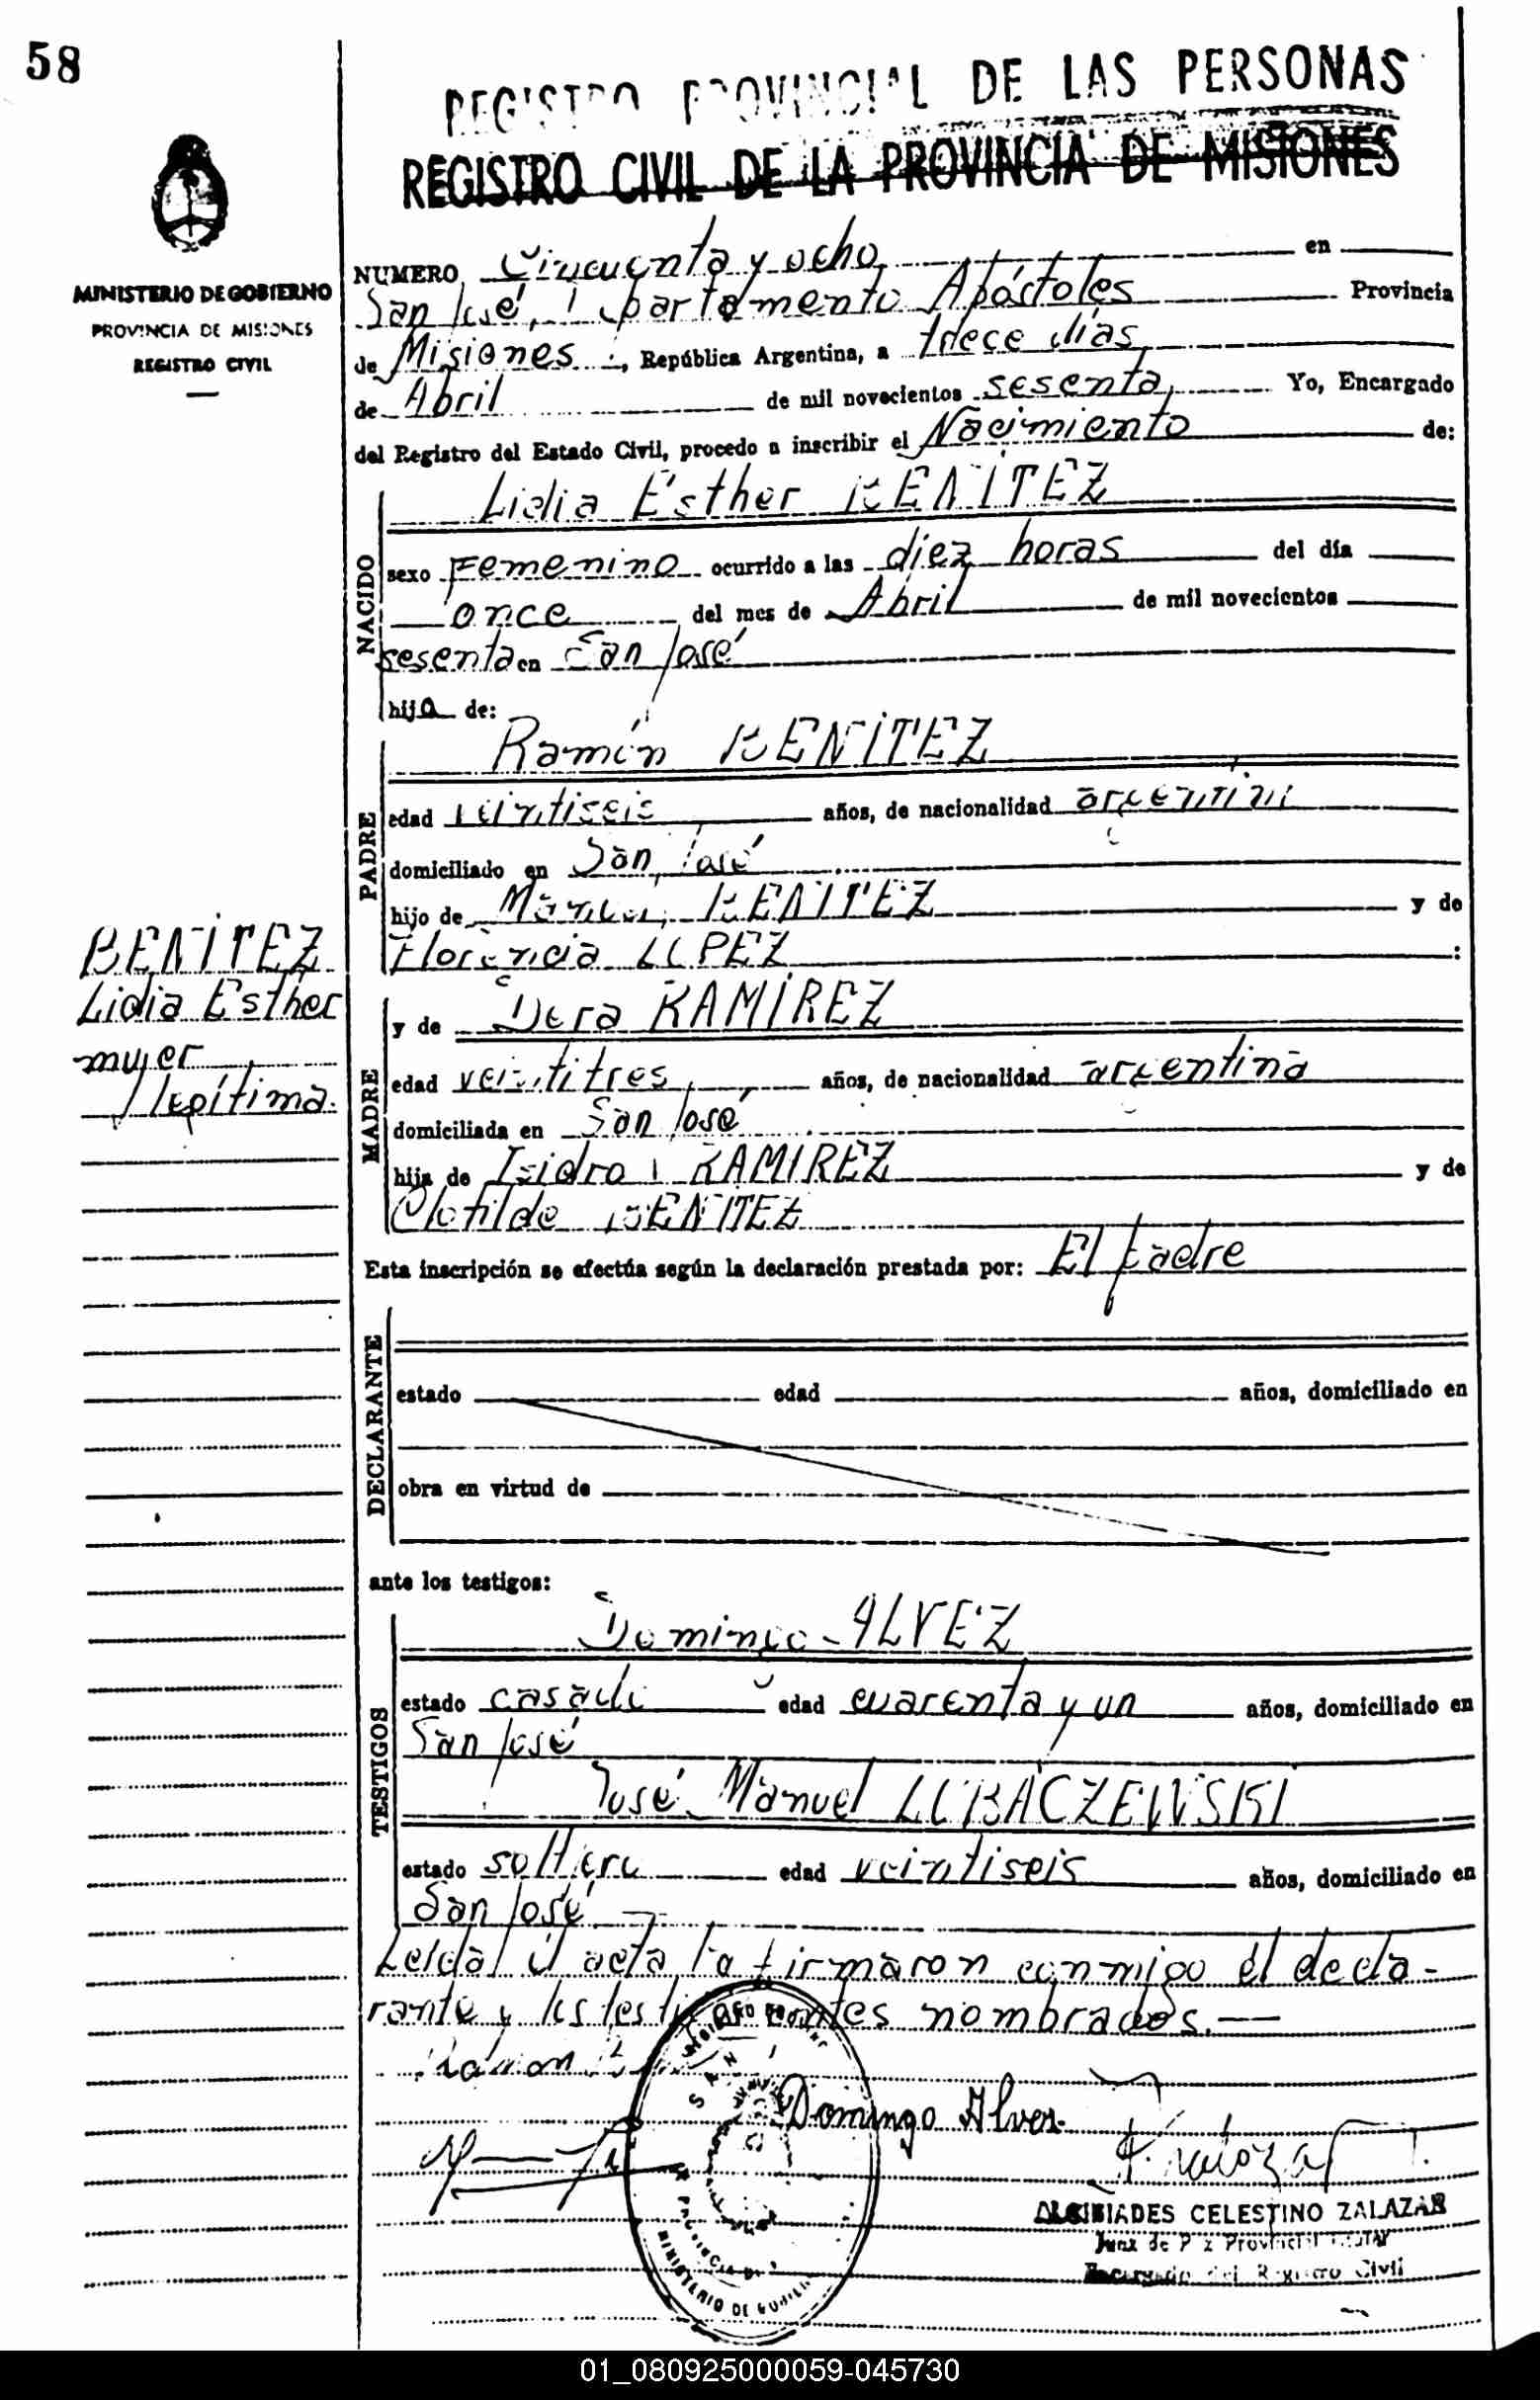 58
REGISTRO PROVINCIAL DE LAS PERSONAS
REGISTRO CIVIL DE LA PROVINCIA DE MISIONES
MINISTERIO DE GOBIERNO
PROVINCIA DE MISIONES
REGISTRO CIVIL
NUMERO Cincuenta y ocho en
San José, Departamento Apóstoles Provincia
de Misiones, República Argentina, a trece días
de Abril de mil novecientos sesenta, Yo, Encargado
del Registro del Estado Civil, procedo a inscribir el Nacimiento de:
NACIDO
Lidia Esther BENÍTEZ
sexo Femenino ocurrido a las diez horas del día
once del mes de Abril de mil novecientos
sesenta en San José
hija de:
PADRE
Ramón BENÍTEZ
edad veintiseis años, de nacionalidad argentina
domiciliado en San José
hijo de Manuel BENITEZ y de
Florencia LOPEZ :
BENÍTEZ
Lidia Esther
mujer
legítima.
MADRE
y de Dora RAMÍREZ
edad veintitres, años, de nacionalidad argentina
domiciliada en San José
hija de Isidro RAMIREZ y de
Clotilde BENITEZ
Esta inscripción se efectúa según la declaración prestada por: El padre
DECLARANTE
estado edad años, domiciliado en
obra en virtud de
ante los testigos:
TESTIGOS
Domingo ALVEZ
estado casado edad cuarenta y un años, domiciliado en
San José
José Manuel LUBACZEWSKI
estado soltero edad veintiseis años, domiciliado en
San José
Leída el acta la firmaron conmigo el decla-
rante y los testigos antes nombrados.—
Ramon
Domingo Alvez
ALCIBIADES CELESTINO ZALAZAR
Juez de Paz Provincial Titular
Encargado del Registro Civil
SAN
PROVINCIA DE
MINISTERIO DE GOBIERNO
01_080925000059-045730